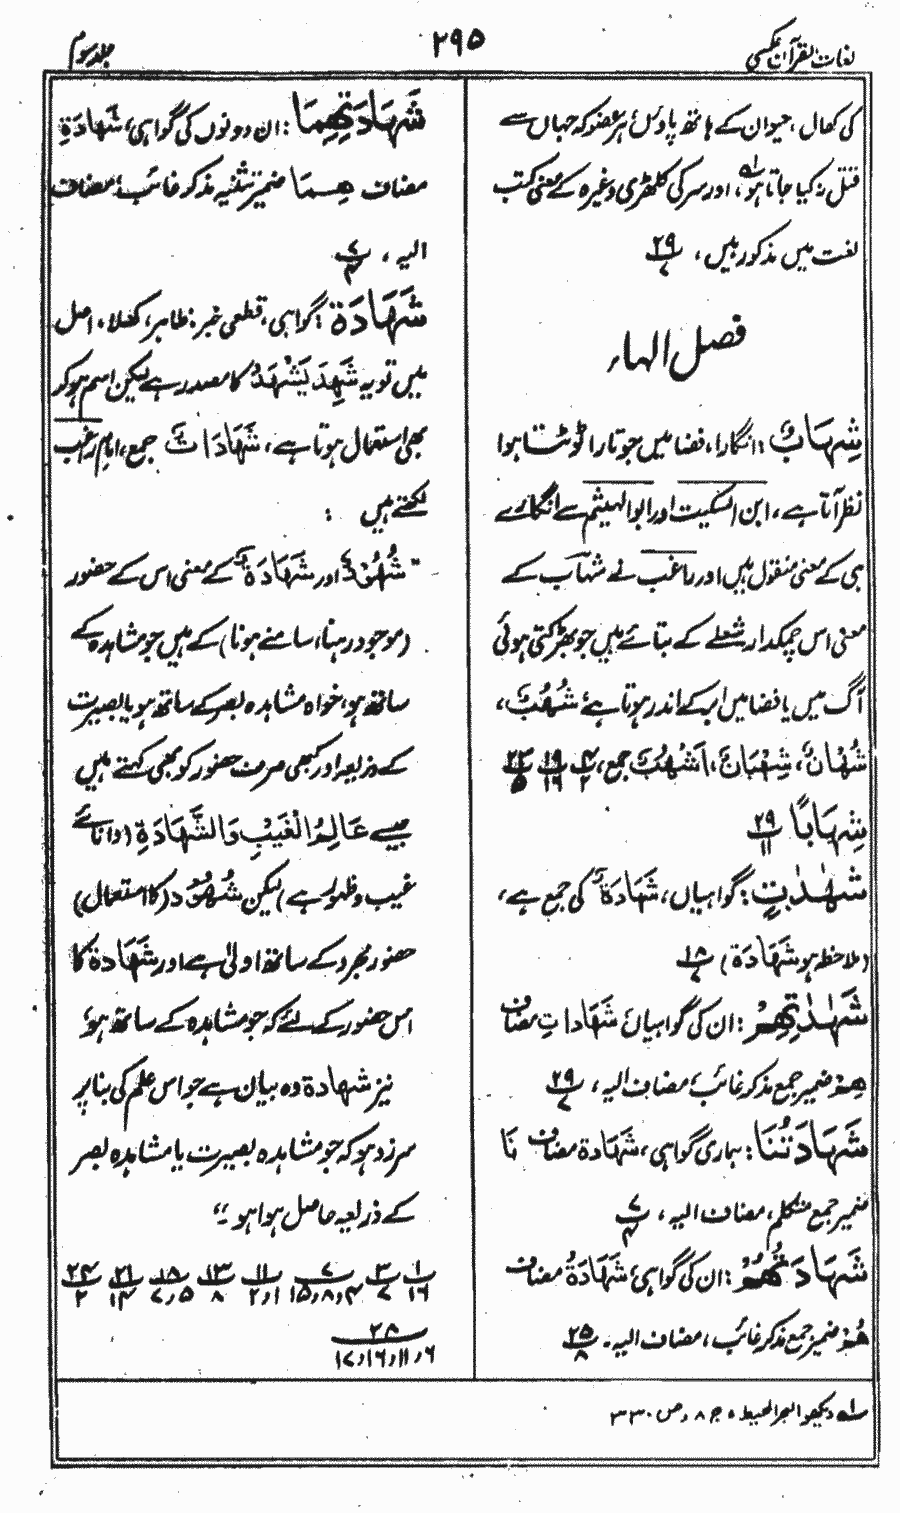 لغات القرآن عکسی
۲۹۵
جلد سوم
کی کھال، حیوان کے ہاتھ پاؤں، ہر عضو کہ جہاں سے
قتل نہ کیا جاتا ہو، اور سر کی کھڑی وغیرہ کے معنی کتب
لغت میں مذکور ہیں، ۲۹/۷
فصل الہاء
شِہَابٌ: انگارا، فضا میں جو تارا ٹوٹتا ہوا
نظر آتا ہے، ابن السکیت اور ابوالہیثم سے انگارے
ہی کے معنی منقول ہیں اور راغب نے شہاب کے
معنی اس چمکدار شعلے کے بتائے ہیں جو بھڑکتی ہوئی
آگ میں یا فضا میں ابر کے اندر ہوتا ہے شُہُبٌ،
شُہْبَانٌ، شِہْبَانٌ، اَشْہُبٌ جمع، ۱۴/۲ ۱۹/۱۶ ۲۳/۵
شِہَابًا ۲۹/۱۱
شَہٰدٰتٍ: گواہیاں، شَہَادَۃٌ کی جمع ہے،
(ملاحظہ ہو شَہَادَۃ) ۱۸/۷
شَہٰدٰتِہِمْ: ان کی گواہیاں شَہَادَاتِ مضاف
ھِمْ ضمیر جمع مذکر غائب، مضاف الیہ، ۲۹/۷
شَہَادَتُنَا: ہماری گواہی، شَہَادَۃ مضاف نَا
ضمیر جمع متکلم، مضاف الیہ، ۷/۴
شَہَادَتُہُمْ: ان کی گواہی، شَہَادَۃُ مضاف
ھُمْ ضمیر جمع مذکر غائب، مضاف الیہ۔ ۲۵/۸
شَہَادَتِہِمَا: ان دونوں کی گواہی، شَہَادَۃِ
مضاف ھِمَا ضمیر تثنیہ مذکر غائب، مضاف
الیہ، ۷/۴
شَہَادَۃ: گواہی، قطعی خبر: ظاہر، کھلا، اصل
میں تو یہ شَہِدَ یَشْہَدُ کا مصدر ہے لیکن اسم ہو کر
بھی استعمال ہوتا ہے، شَہَادَاتٌ جمع، امام راغب
لکھتے ہیں:
"شُہُوْدٌ اور شَہَادَۃٌ کے معنی اس کے حضور
(موجود رہنا، سامنے ہونا) کے ہیں جو مشاہدہ کے
ساتھ ہو، خواہ مشاہدہ بصر کے ساتھ ہو یا بصیرت
کے ذریعہ اور کبھی صرف حضور کو بھی کہتے ہیں
جیسے عَالِمُ الْغَیْبِ وَالشَّہَادَۃِ (دانائے
غیب و ظہور ہے) لیکن شُہُوْد (کا استعمال)
حضور مجرد کے ساتھ اولیٰ ہے اور شَہَادَۃ کا
اس حضور کے لئے کہ جو مشاہدہ کے ساتھ ہو،
نیز شہادۃ وہ بیان ہے جو اس علم کی بنا پر
سرزد ہو کہ جو مشاہدہ بصیرت یا مشاہدہ بصر
کے ذریعہ حاصل ہوا ہو۔"
۱/۱۶ ۳/۷ ۷/۴،۸،۱۵ ۱۱/۱،۲ ۱۳/۸ ۱۸/۵،۷ ۲۱/۱۴ ۲۴/۲
۲۸/۶،۱۱،۱۶،۱۷
لہ دیکھو البحر المحیط، ج ۸، ص ۳۳۰